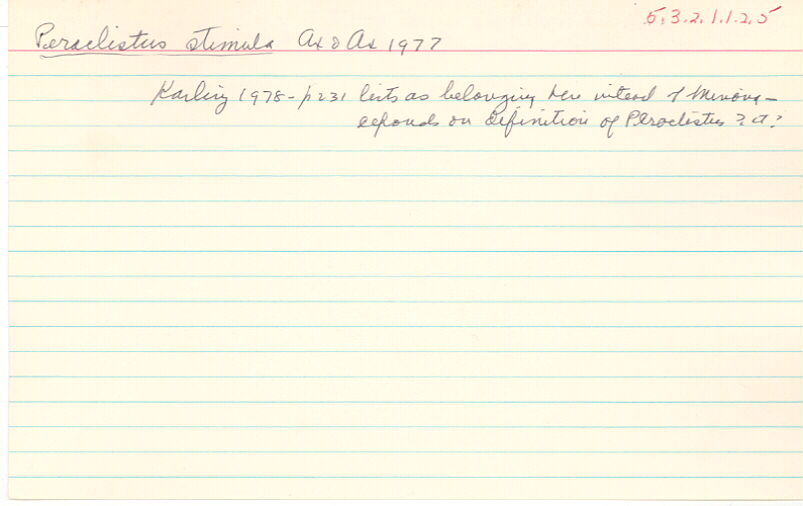 5.3.2.1.1.2.5
Peraclistus stimula Ax & Ax 1977
Karling 1978 - p231 lists as belonging here instead of Minona -
expands on definition of Peraclistus